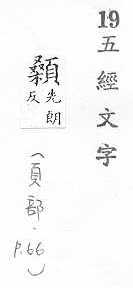 19五經文字
顙
先朗
反
（頁部．
p.66）